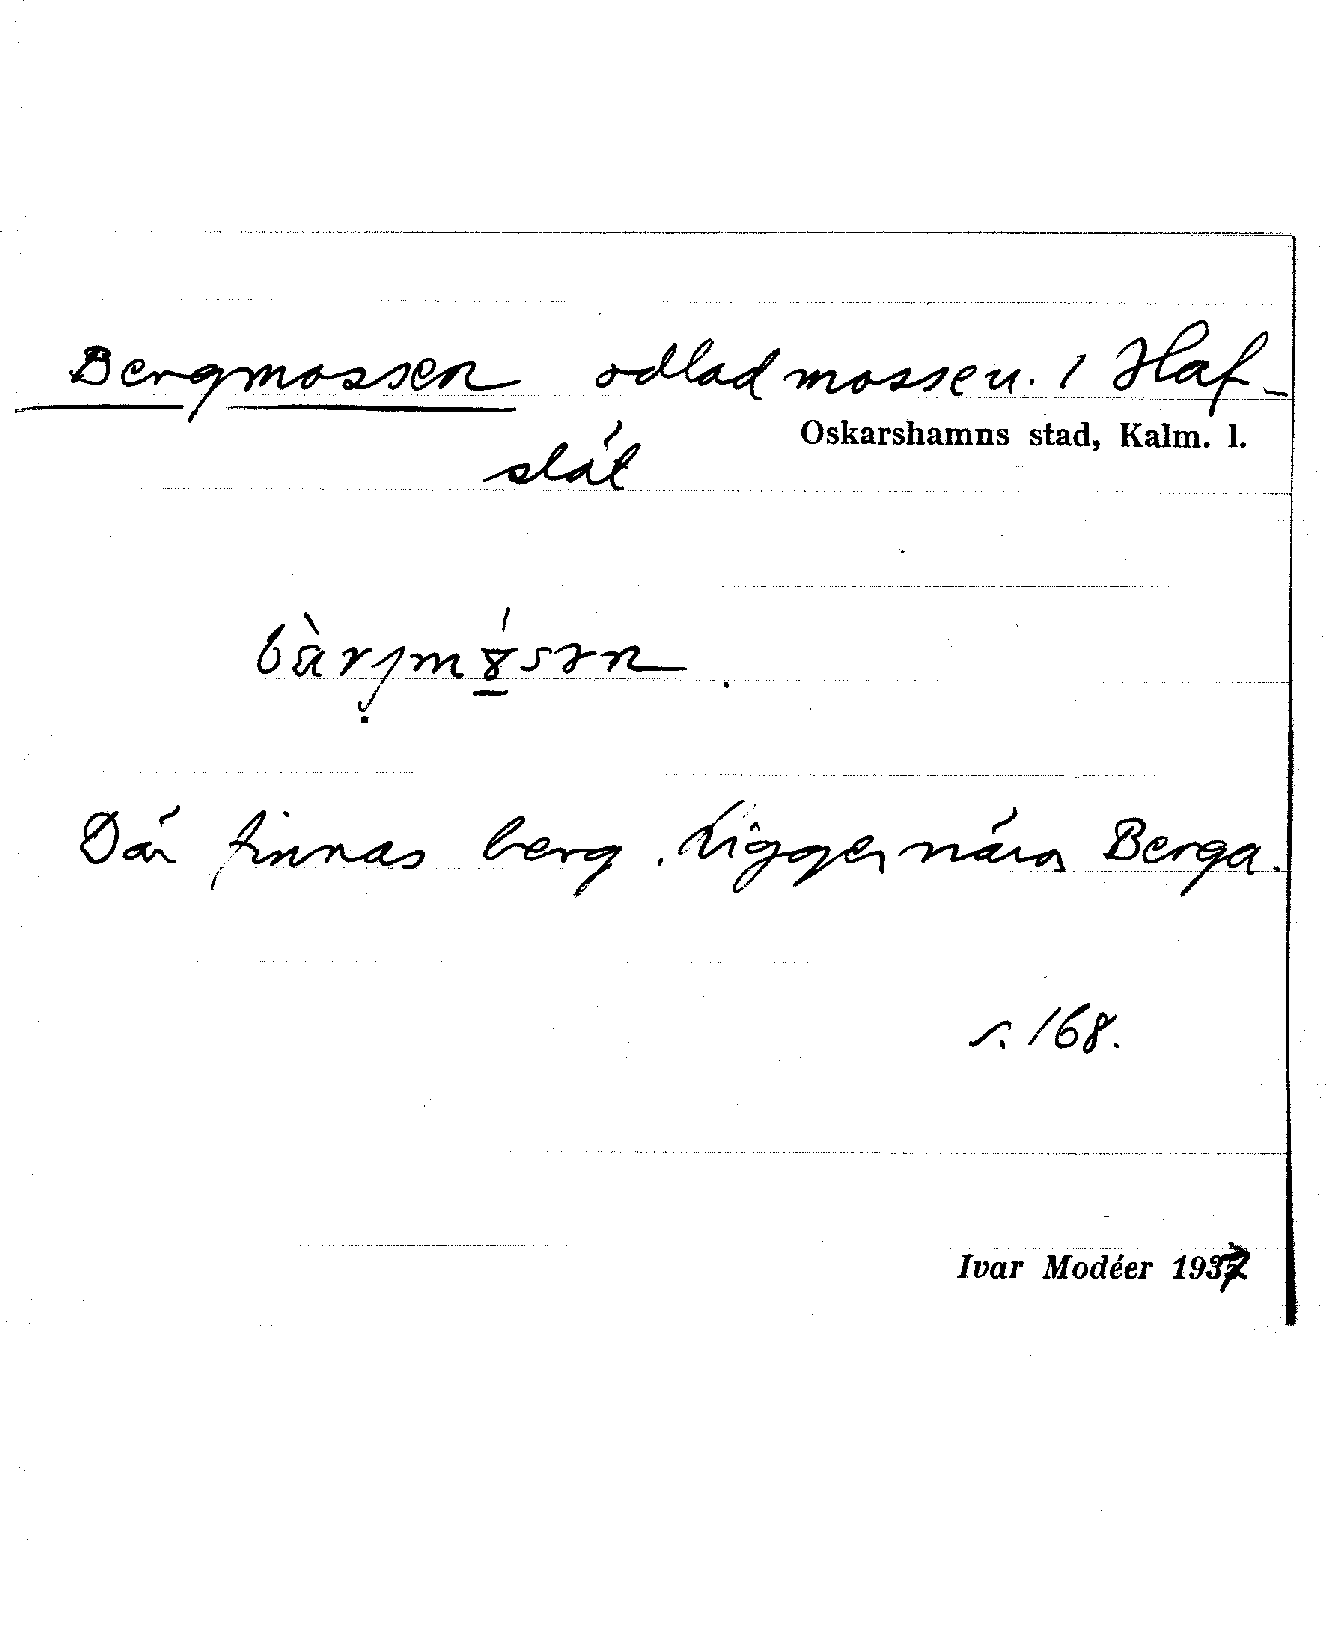 Bergmossen odlad mossen. / Haf-
Oskarshamns stad, Kalm. l.
slät
Där finnas berg. Ligger nära Berga.
s. 168.
Ivar Modéer 1937